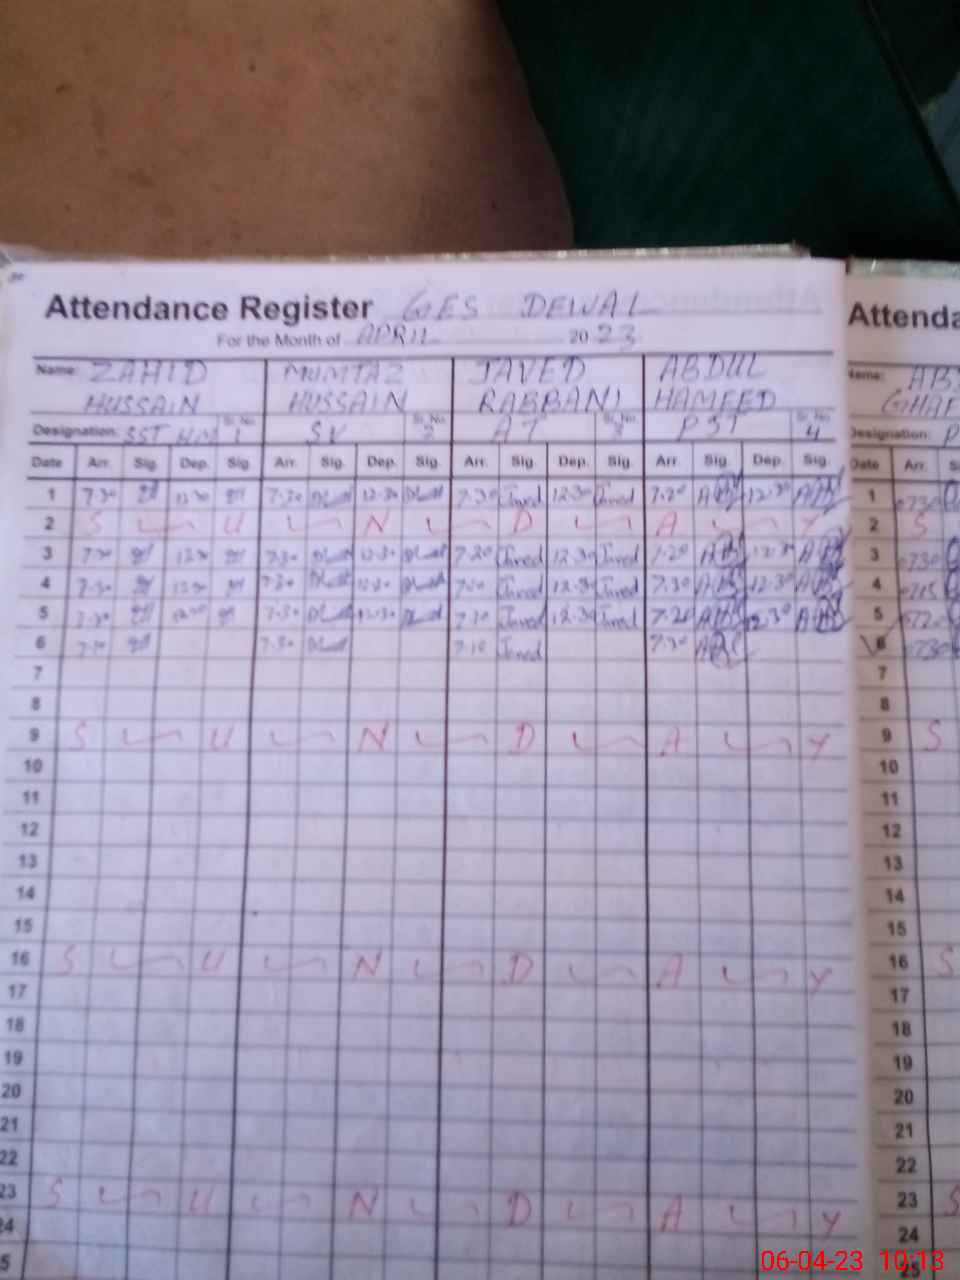 Attendance Register GES DEWAL
For the Month of APRIL 2023
Name: ZAHID HUSSAIN MUMTAZ HUSSAIN JAVED RABBANI ABDUL HAMEED
Designation: SST H/M Sr. No 1 SV Sr. No 2 AT Sr. No 3 PST Sr. No 4
Date Arr. Sig. Dep. Sig. Arr. Sig. Dep. Sig. Arr. Sig. Dep. Sig. Arr. Sig. Dep. Sig.
1 7.30 12.30 7.30 12.30 7.30 Javed 12.30 Javed 7.20 12.30
2 S U N D A Y
3 7.30 12.30 7.30 12.30 7.20 Javed 12.30 Javed 7.20
4 7.30 12.30 7.30 12.30 Javed 12.30 Javed 7.30 12.30
5 7.30 12.30 7.30 12.30 Javed 12.30 Javed 7.20 12.30
6 7.30 7.30 7.10 Javed 7.30
7
8
9 S U N D A Y
10
11
12
13
14
15
16 S U N D A Y
17
18
19
20
21
22
23 S U N D A Y
24
Attenda
Name:
Designation: P
Date Arr.
1 0730
2 S
3 0730
4 0715
5 0720
6 0730
7
8
9 S
10
11
12
13
14
15
16 S
17
18
19
20
21
22
23 S
24
25
06-04-23 10:13